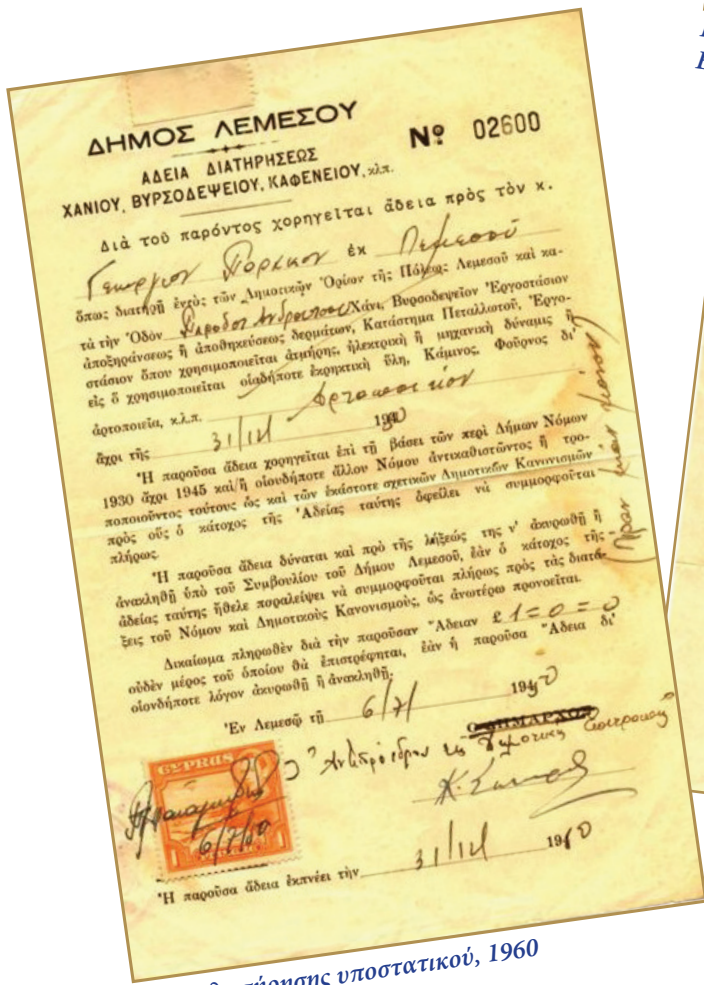 ΔΗΜΟΣ ΛΕΜΕΣΟΥ
Nº 02600
ΑΔΕΙΑ ΔΙΑΤΗΡΗΣΕΩΣ
ΧΑΝΙΟΥ, ΒΥΡΣΟΔΕΨΕΙΟΥ, ΚΑΦΕΝΕΙΟΥ, κλπ.
Διὰ τοῦ παρόντος χορηγεῖται ἄδεια πρὸς τὸν κ.
Γεώργιον ἐκ Λεμεσοῦ
ὅπως διατηρῇ ἐντὸς τῶν Δημοτικῶν Ὁρίων τῆς Πόλεως Λεμεσοῦ καὶ κα-
τὰ τὴν Ὁδὸν Χάνι, Βυρσοδεψεῖον Ἐργοστάσιον
ἀποξηράνσεως ἢ ἀποθηκεύσεως δερμάτων, Κατάστημα Πεταλλωτοῦ, Ἐργο-
στάσιον ὅπου χρησιμοποιεῖται ἀτμήρης, ἠλεκτρικὴ ἢ μηχανικὴ δύναμις ἢ
εἰς ὃ χρησιμοποιεῖται οἱαδήποτε ἐκρηκτικὴ ὕλη, Κάμινος, Φοῦρνος δι'
ἀρτοποιεῖα, κ.λ.π. Ἀρτοποιεῖον
ἄχρι τῆς 31/12/ 1960
Ἡ παροῦσα ἄδεια χορηγεῖται ἐπὶ τῇ βάσει τῶν περὶ Δήμων Νόμων
1930 ἄχρι 1945 καὶ/ἢ οἱουδήποτε ἄλλου Νόμου ἀντικαθιστῶντος ἢ τρο-
ποποιοῦντος τούτους ὡς καὶ τῶν ἑκάστοτε σχετικῶν Δημοτικῶν Κανονισμῶν
πρὸς οὓς ὁ κάτοχος τῆς Ἀδείας ταύτης ὀφείλει νὰ συμμορφοῦται
πλήρως.
Ἡ παροῦσα ἄδεια δύναται καὶ πρὸ τῆς λήξεώς της ν' ἀκυρωθῇ ἢ
ἀνακληθῇ ὑπὸ τοῦ Συμβουλίου τοῦ Δήμου Λεμεσοῦ, ἐὰν ὁ κάτοχος τῆς
ἀδείας ταύτης ἤθελε παραλείψει νὰ συμμορφοῦται πλήρως πρὸς τὰς διατά-
ξεις τοῦ Νόμου καὶ Δημοτικοὺς Κανονισμούς, ὡς ἀνωτέρω προνοεῖται.
Δικαίωμα πληρωθὲν διὰ τὴν παροῦσαν Ἄδειαν £ 1=0=0
οὐδὲν μέρος τοῦ ὁποίου θὰ ἐπιστρέφηται, ἐὰν ἡ παροῦσα Ἄδεια δι'
οἱονδήποτε λόγον ἀκυρωθῇ ἢ ἀνακληθῇ.
Ἐν Λεμεσῷ τῇ 6/7/ 1960
Ο ΔΗΜΑΡΧΟΣ
CYPRUS
6/7/60
1
Ἡ παροῦσα ἄδεια ἐκπνέει τὴν 31/12/ 1960
υποστατικού, 1960